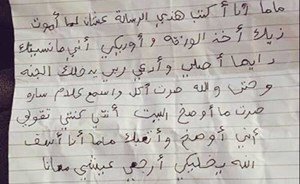 ماما أنا أكتب هذي الرسالة عشان لما أموت
زيك أخذ الورقة و أوريكي أني مانسيتك
دايما أصلي و أدعي ربي يدخلك الجنه
وحتى والله صرت أكل و اسمع كلام ساره
صرت ما أوصخ البيت أنتي كنتي تقولي
أني أوصخ و أتعبك ماما أنا أسف
الله يخليكي أرجعي عيشي معانا